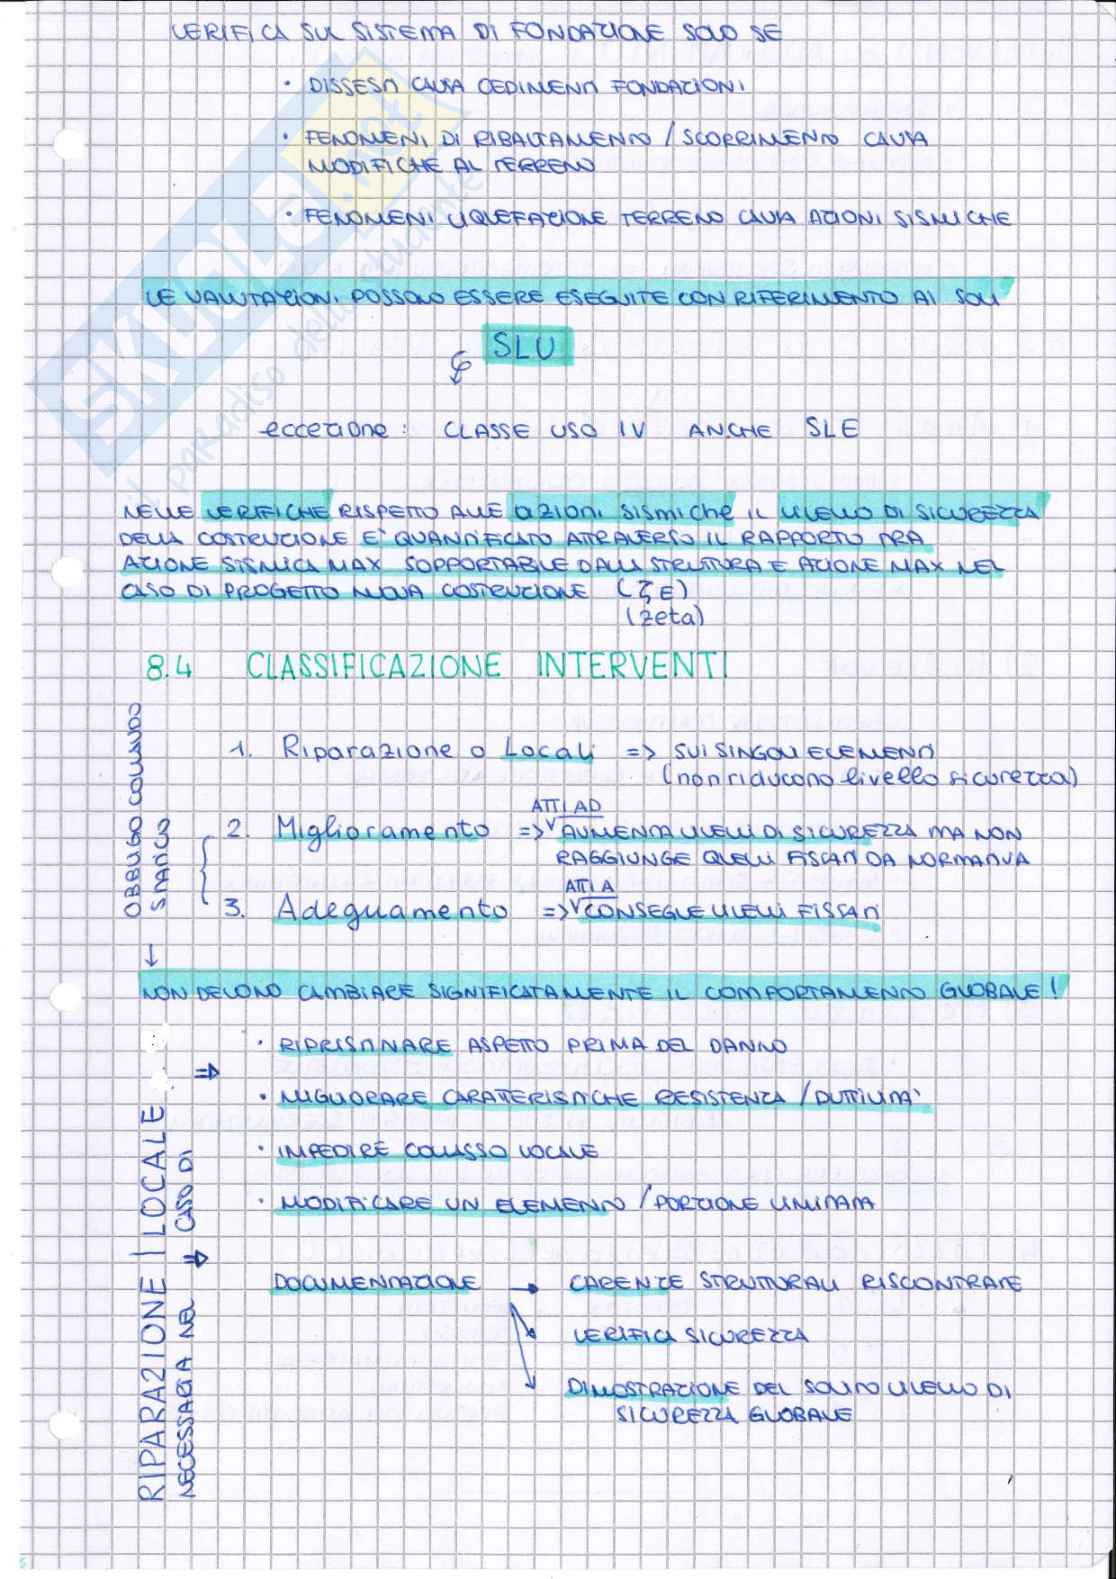 VERIFICA SUL SISTEMA DI FONDAZIONE SOLO SE
· DISSESTI CAUSA CEDIMENTI FONDAZIONI
· FENOMENI DI RIBALTAMENTO / SCORRIMENTO CAUSA
MODIFICHE AL TERRENO
· FENOMENI LIQUEFAZIONE TERRENO CAUSA AZIONI SISMICHE
LE VALUTAZIONI POSSONO ESSERE ESEGUITE CON RIFERIMENTO AI SOLI
SLU
eccezione: CLASSE USO IV ANCHE SLE
NELLE VERIFICHE RISPETTO ALLE azioni sismiche IL LIVELLO DI SICUREZZA
DELLA COSTRUZIONE E' QUANTIFICATO ATTRAVERSO IL RAPPORTO TRA
AZIONE SISMICA MAX SOPPORTABILE DALLA STRUTTURA E AZIONE MAX NEL
CASO DI PROGETTO NUOVA COSTRUZIONE (ζE)
(zeta)
8.4 CLASSIFICAZIONE INTERVENTI
OBBLIGO COLLAUDO
STATICO
1. Riparazione o Locali => SUI SINGOLI ELEMENTI
(non riducono livello sicurezza)
ATTI AD
2. Miglioramento => AUMENTA LIVELLI DI SICUREZZA MA NON
RAGGIUNGE QUELLI FISSATI DA NORMATIVA
ATTI A
3. Adeguamento => CONSEGUE LIVELLI FISSATI
NON DEVONO CAMBIARE SIGNIFICATAMENTE IL COMPORTAMENTO GLOBALE!
RIPARAZIONE | LOCALE
NECESSARIA NEL CASO DI
· RIPRISTINARE ASPETTO PRIMA DEL DANNO
· MIGLIORARE CARATTERISTICHE RESISTENZA / DUTTILITA'
· IMPEDIRE COLLASSO LOCALE
· MODIFICARE UN ELEMENTO / PORZIONE LIMITATA
DOCUMENTAZIONE → CARENZE STRUTTURALI RISCONTRATE
VERIFICA SICUREZZA
DIMOSTRAZIONE DEL SOLITO LIVELLO DI
SICUREZZA GLOBALE
SKUOLA.net
il paradiso dello studente